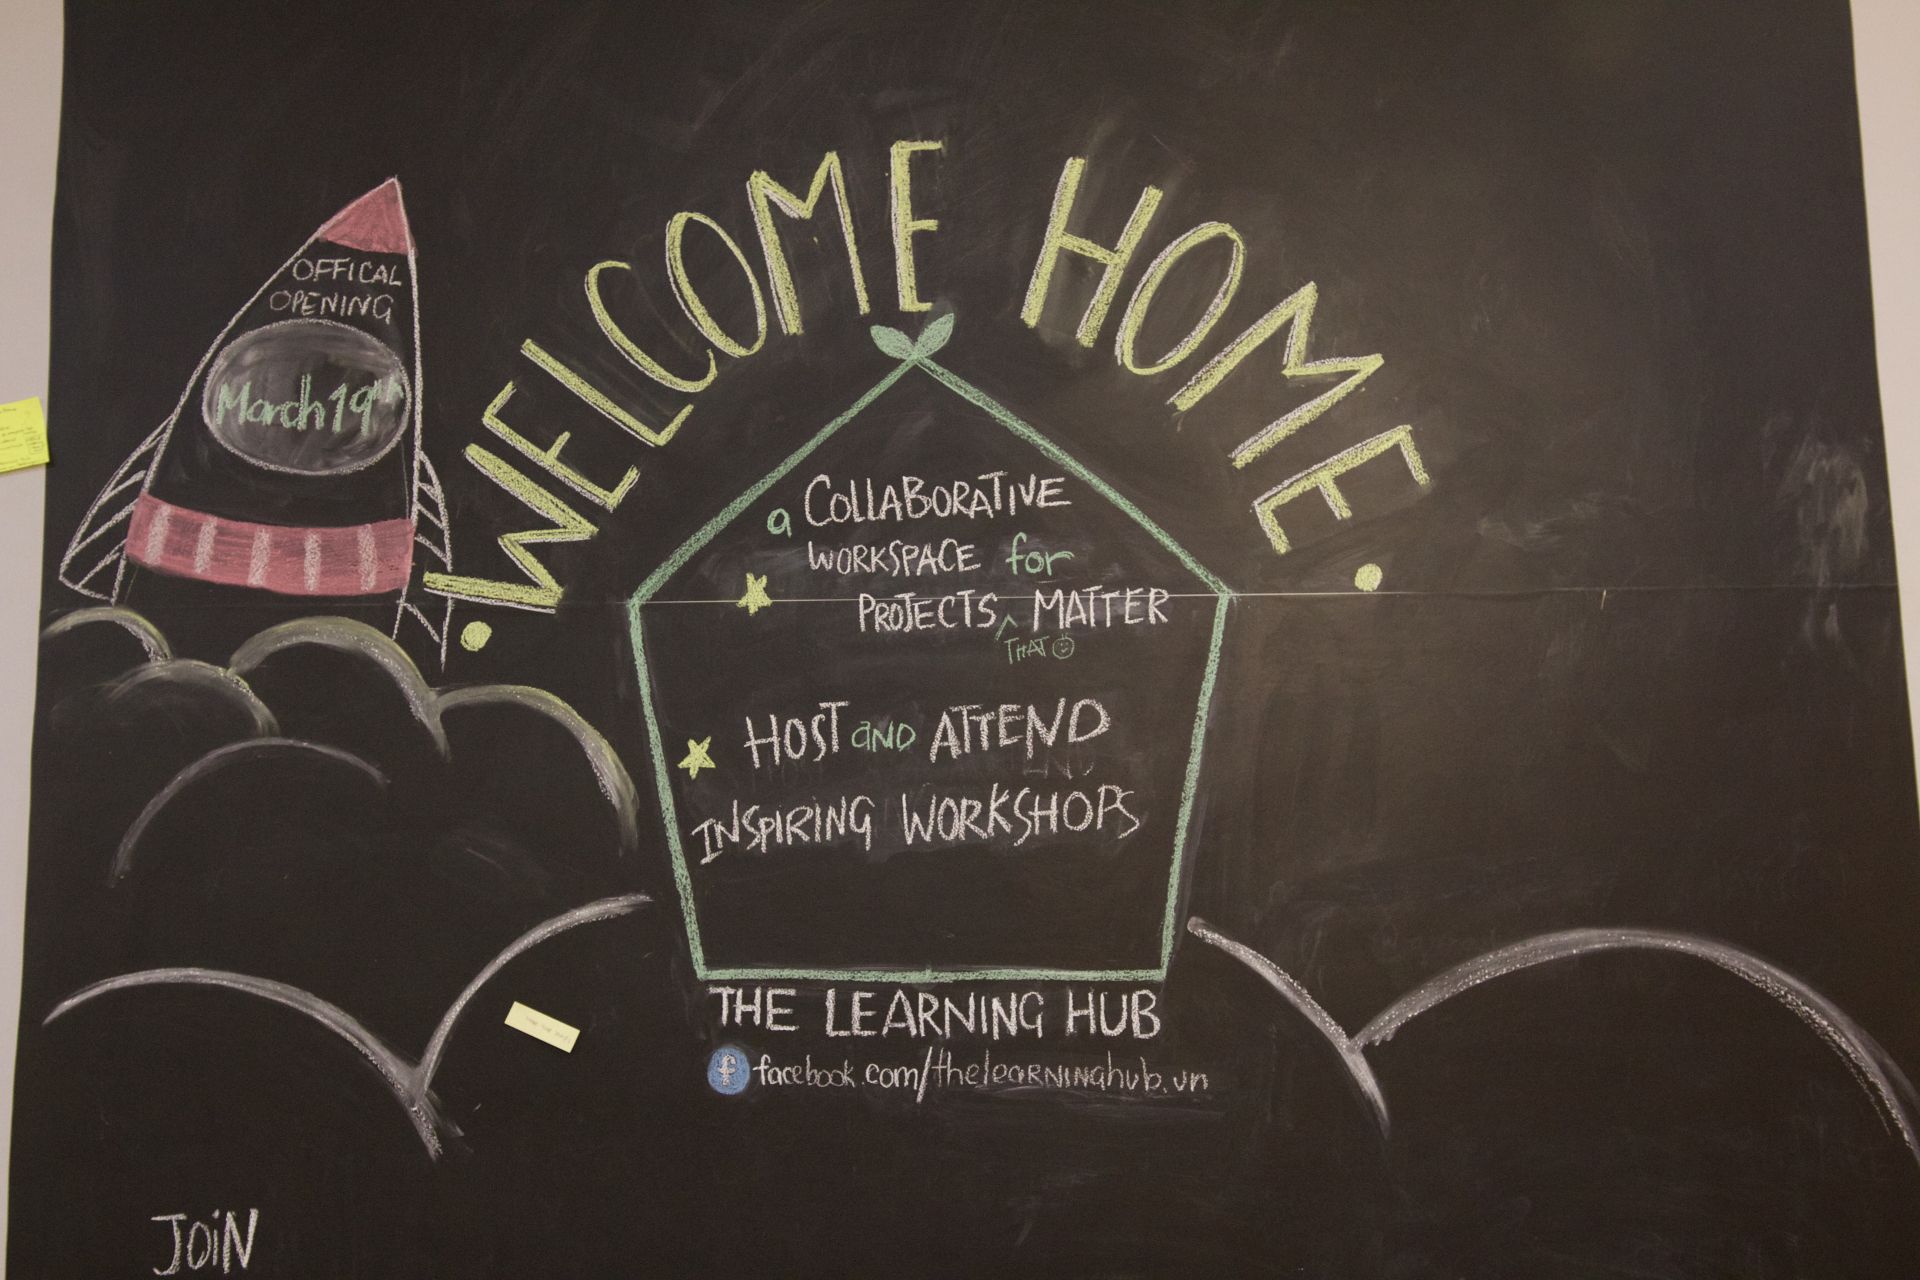 WELCOME HOME
OFFICAL
OPENING
March 19th
a COLLABORATIVE
WORKSPACE for
PROJECTS ^ MATTER
THAT
HOST aND ATTEND
INSPIRING WORKSHOPS
THE LEARNING HUB
f facebook.com/thelearninghub.vn
JOiN